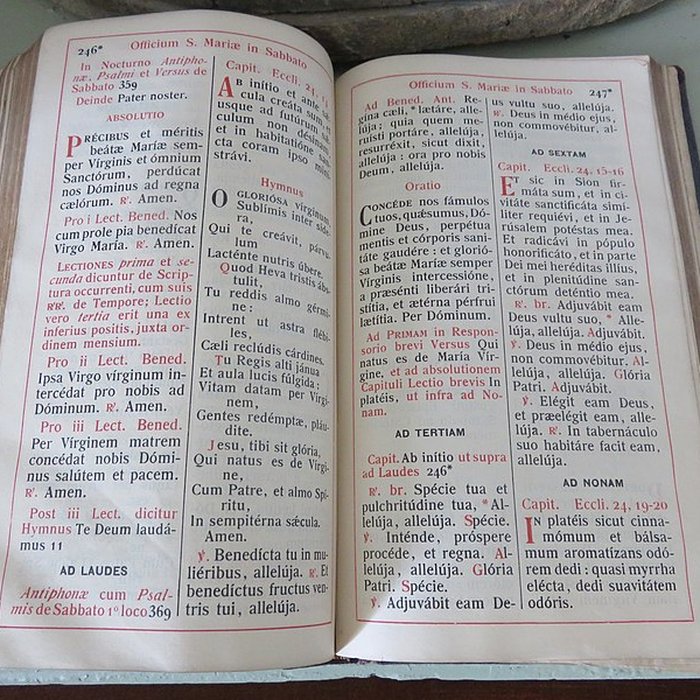 246*
Officium S. Mariæ in Sabbato
In Nocturno Antipho-
næ, Psalmi et Versus de
Sabbato 359
Deinde Pater noster.
ABSOLUTIO
PRÉCIBUS et méritis
beátæ Maríæ sem-
per Vírginis et ómnium
Sanctórum, perdúcat
nos Dóminus ad regna
cælórum. ℟. Amen.
Pro i Lect. Bened. Nos
cum prole pia benedícat
Virgo María. ℟. Amen.
LECTIONES prima et se-
cunda dicuntur de Scrip-
tura occurrenti, cum suis
℟℟. de Tempore; Lectio
vero tertia erit una ex
inferius positis, juxta or-
dinem mensium.
Pro ii Lect. Bened.
Ipsa Virgo vírginum in-
tercédat pro nobis ad
Dóminum. ℟. Amen.
Pro iii Lect. Bened.
Per Vírginem matrem
concédat nobis Dómi-
nus salútem et pacem.
℟. Amen.
Post iii Lect. dicitur
Hymnus Te Deum laudá-
mus 11
AD LAUDES
Antiphonæ cum Psal-
mis de Sabbato 1º loco 369
Capit. Eccli. 24,
AB inítio et ante sǽ-
cula creáta sum, et
usque ad futúrum sǽ-
culum non désinam,
et in habitatióne sancta
cta coram ipso mini-
strávi.
Hymnus
O GLORIÓSA vírginum,
Sublímis inter síde-
ra,
Qui te creávit, párvu-
lum
Lacténte nutris úbere.
Quod Heva tristis ábs-
tulit,
Tu reddis almo gérmi-
ne:
Intrent ut astra flébi-
les,
Cæli reclúdis cárdines.
Tu Regis alti jánua
Et aula lucis fúlgida:
Vitam datam per Vírgi-
nem,
Gentes redémptæ, pláu-
dite.
Jesu, tibi sit glória,
Qui natus es de Vírgi-
ne,
Cum Patre, et almo Spí-
ritu,
In sempitérna sǽcula.
Amen.
℣. Benedícta tu in mu-
liéribus, allelúja. ℟. Et
benedíctus fructus ven-
tris tui, allelúja.
Officium S. Mariæ in Sabbato
247*
Ad Bened. Ant. Re-
gína cæli, * lætáre, alle-
lúja; quia quem me-
ruísti portáre, allelúja,
resurréxit, sicut dixit,
allelúja: ora pro nobis
Deum, allelúja.
Oratio
CONCÉDE nos fámulos
tuos, quǽsumus, Dó-
mine Deus, perpétua
mentis et córporis sani-
táte gaudére: et glorió-
sa beátæ Maríæ semper
Vírginis intercessióne,
a præsénti liberári tri-
stítia, et ætérna pérfrui
lætítia. Per Dóminum.
Ad PRIMAM in Respon-
sorio brevi Versus Qui
natus es de María Vír-
gine, et ad absolutionem
Capituli Lectio brevis In
platéis, ut infra ad No-
nam.
AD TERTIAM
Capit. Ab inítio ut supra
ad Laudes 246*
℟. br. Spécie tua et
pulchritúdine tua, * Al-
lelúja, allelúja. Spécie.
℣. Inténde, próspere
procéde, et regna. Al-
lelúja, allelúja. Glória
Patri. Spécie.
℣. Adjuvábit eam De-
us vultu suo, allelúja.
℟. Deus in médio ejus,
non commovébitur, al-
lelúja.
AD SEXTAM
Capit. Eccli. 24, 15-16
ET sic in Sion fir-
máta sum, et in ci-
vitáte sanctificáta símí-
liter requiévi, et in Je-
rúsalem potéstas mea.
Et radicávi in pópulo
honorificáto, et in parte
Dei mei heréditas illíus,
et in plenitúdine san-
ctórum deténtio mea.
℟. br. Adjuvábit eam
Deus vultu suo, * Alle-
lúja, allelúja. Adjuvábit.
℣. Deus in médio ejus,
non commovébitur. Al-
lelúja, allelúja. Glória
Patri. Adjuvábit.
℣. Elégit eam Deus,
et præelégit eam, alle-
lúja. ℟. In tabernáculo
suo habitáre facit eam,
allelúja.
AD NONAM
Capit. Eccli. 24, 19-20
IN platéis sicut cinna-
mómum et bálsa-
mum aromatízans odó-
rem dedi: quasi myrrha
elécta, dedi suavitátem
odóris.